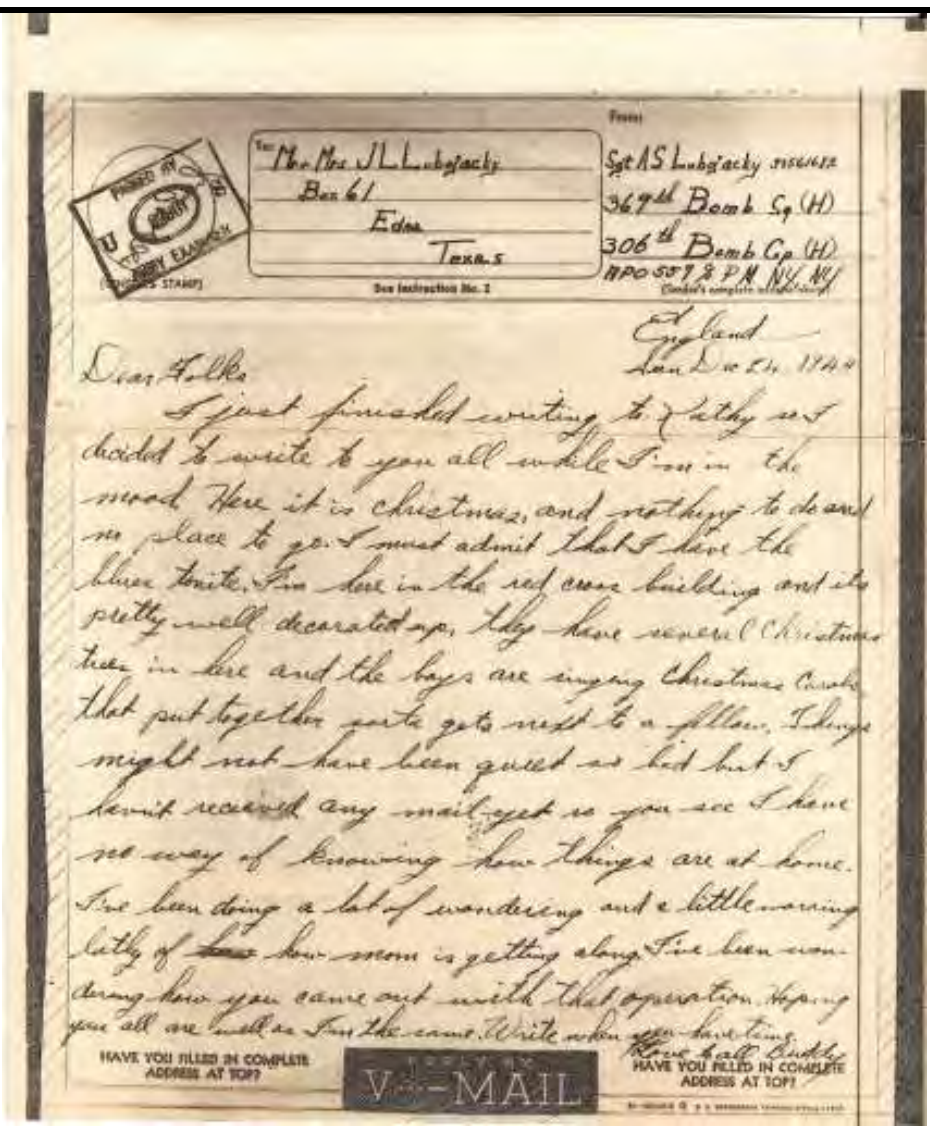 From:
To:
Mr. Mrs J L Lubojacky
Box 61
Edna
Texas
See Instruction No. 2
Sgt AS Lubojacky
369th Bomb Sq (H)
306th Bomb Gp (H)
APO 557 % P M NY NY
(Sender's complete address above)
PASSED BY
U
ARMY EXAMINER
(CENSOR'S STAMP)
England
Sun Dec 24, 1944
Dear Folks
I just finished writing to Kathy so I
decided to write to you all while I'm in the
mood. Here it is christmas, and nothing to do and
no place to go. I must admit that I have the
blues tonite. I'm here in the red cross building and its
pretty well decorated up, they have several Christmas
trees in here and the boys are singing Christmas Carols
that put together sorta gets next to a fellow. Things
might not have been quiet so bad but I
havn't received any mail yet so you see I have
no way of knowing how things are at home.
I've been doing a lot of wondering and a little worring
latly of how mom is getting along. I've been won-
dering how you came out with that operation. Hoping
you all are well as I'm the same. Write when you have time.
Love to all Buddy
HAVE YOU FILLED IN COMPLETE
ADDRESS AT TOP?
V···—MAIL
HAVE YOU FILLED IN COMPLETE
ADDRESS AT TOP?